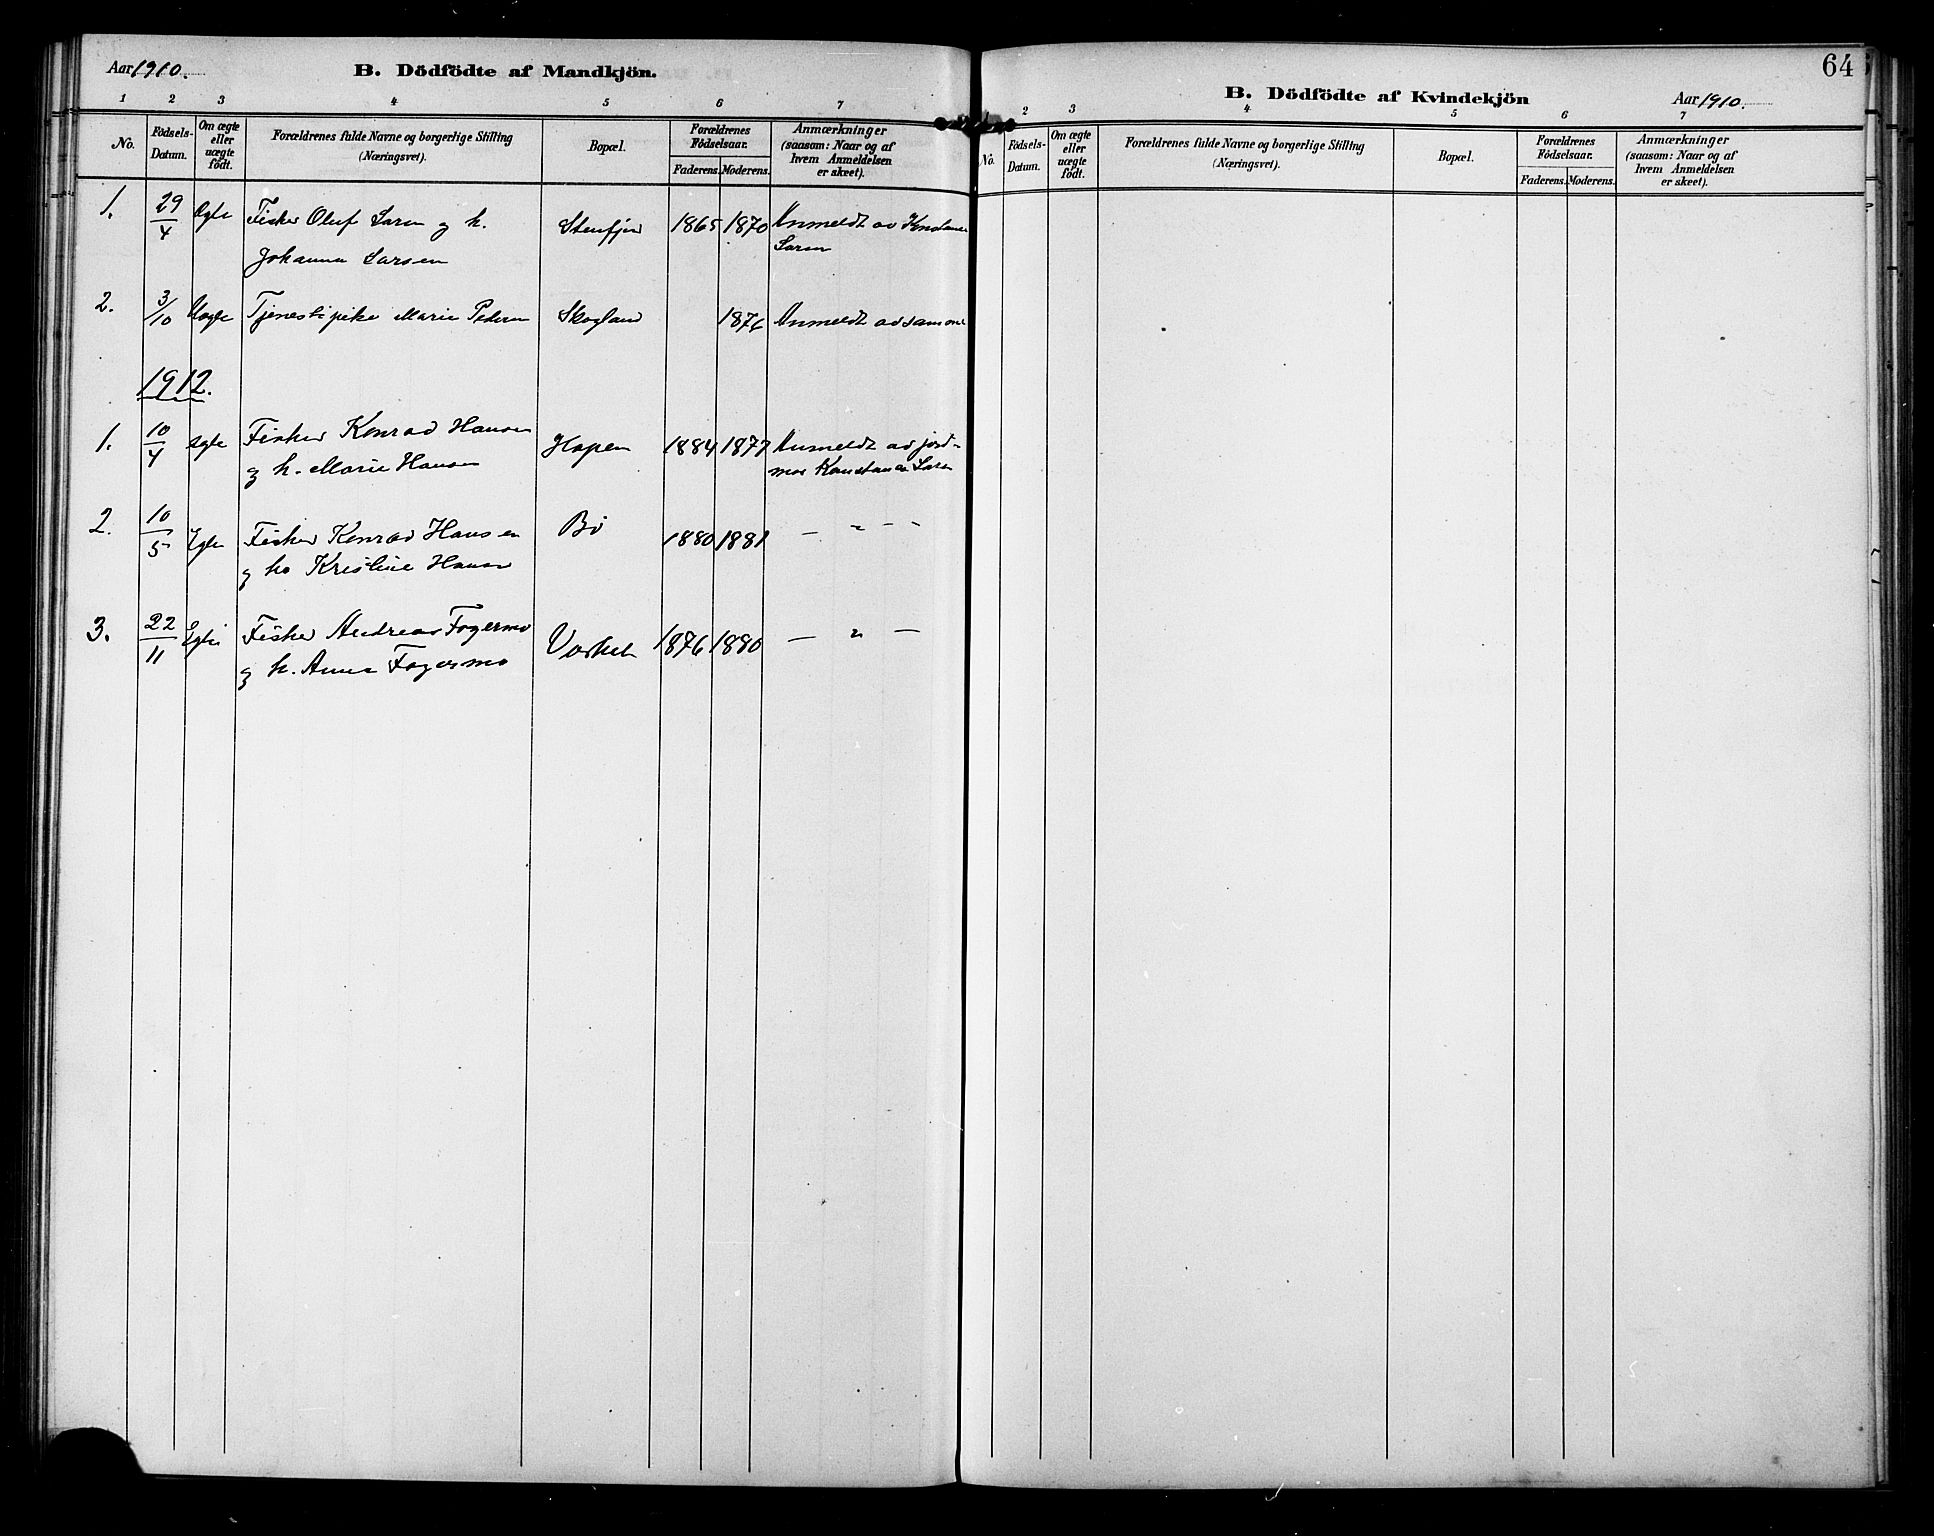 Aar 1910.
B. Dödfödte af Mandkjön.
1 2 3 4 5 6 7
No.
Födsels-
Datum.
Om ægte
eller
uægte
födt.
Forældrenes fulde Navne og borgerlige Stilling
(Næringsvei).
Bopæl.
Forældrenes
Födselsaar.
Faderens. Moderens.
Anmærkninger
(saasom: Naar og af
hvem Anmeldelsen
er skeet).
1. 29/4 Fisker Oluf Larsen og h. 1865 1870 Anmeldt av
Johanna Larsen
2. 3/10 Uegte Tjenestepike Marie Skogland 1876 Anmeldt av
1912.
1. 10/4 Fisker Konrad Hansen Hopen 1884 1877 Anmeldt av jord-
og h. Marie Hansen mor Konstance
2. 10/5 Fisker Konrad Hansen Bö 1880 1881 — " —
og h Kristine Hansen
3. 22/11 Fisker Andreas Fagermo 1876 1880 — " —
og h. Anna Fagermo
B. Dödfödte af Kvindekjön
Aar 1910.
64
2 3 4 5 6 7
No.
Födsels-
Datum.
Om ægte
eller
uægte
födt.
Forældrenes fulde Navne og borgerlige Stilling
(Næringsvei).
Bopæl.
Forældrenes
Födselsaar.
Faderens. Moderens.
Anmærkninger
(saasom: Naar og af
hvem Anmeldelsen
er skeet).